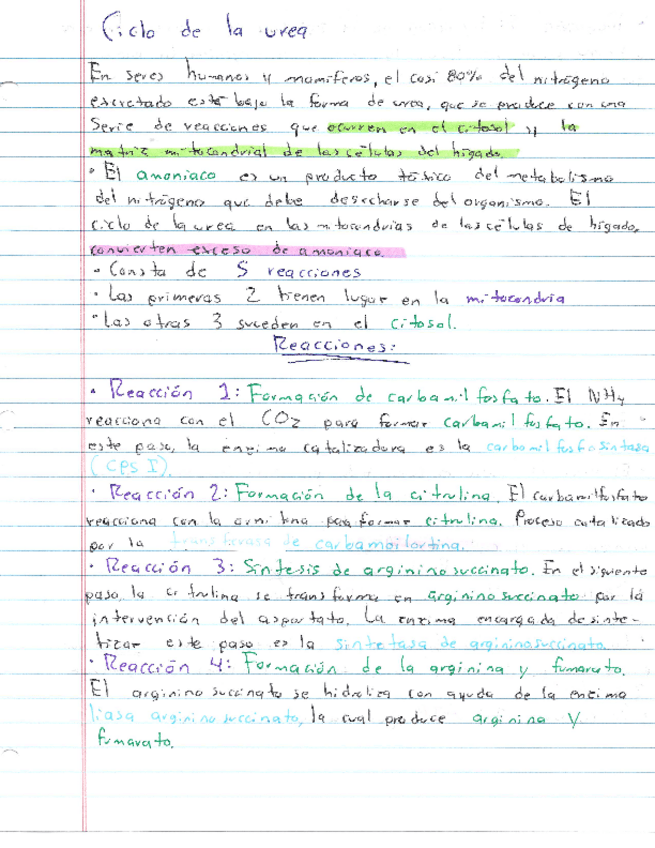 Ciclo de la urea
En seres humanos y mamiferos, el casi 80% del nitrógeno
excretado está bajo la forma de urea, que se produce con una
Serie de reacciones que ocurren en el citosol y la
matriz mitocondrial de las células del hígado.
• El amoniaco es un producto tóxico del metabolismo
del nitrógeno que debe desecharse del organismo. El
ciclo de la urea en las mitocondrias de las células de hígado,
convierten exceso de amoniaco.
• Consta de 5 reacciones
• Las primeras 2 tienen lugar en la mitocondria
• Las otras 3 suceden en el citosol.
Reacciones:
• Reacción 1: Formación de carbamil fosfato. El NH4
reacciona con el CO2 para formar carbamil fosfato. En
este paso, la enzima catalizadora es la carbomil fosfo sintasa
(CPS I).
• Reacción 2: Formación de la citrulina. El carbamilfosfato
reacciona con la ornitina para formar citrulina. Proceso catalizado
por la transferasa de carbamoilortina.
• Reacción 3: Síntesis de argininosuccinato. En el siguiente
paso, la citrulina se transforma en argininosuccinato por la
intervención del aspartato. La enzima encargada de sinte-
tizar este paso es la sintetasa de argininosuccinato.
• Reacción 4: Formación de la arginina y fumarato.
El argininosuccinato se hidroliza con ayuda de la enzima
liasa argininosuccinato, la cual produce arginina y
fumarato.